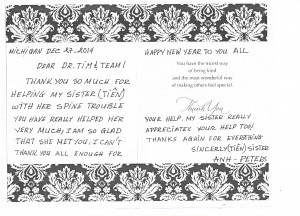 MICHIGAN DEC 27. 2014
DEAR DR. TIM & TEAM!
THANK YOU SO MUCH FOR
HELPING MY SISTER (TIÊN)
WITH HER SPINE TROUBLE
YOU HAVE REALLY HELPED HER
VERY MUCH, I AM SO GLAD
THAT SHE MET YOU. I CAN'T
THANK YOU ALL ENOUGH FOR
HAPPY NEW YEAR TO YOU ALL
You have the nicest way
of being kind
and the most wonderful way
of making others feel special.
Thank You
YOUR HELP. MY SISTER REALLY
APPRECIATES YOUR HELP TOO!
THANKS AGAIN FOR EVERYTHING
SINCERLY (TIÊN) SISTER
ANH - PETERS